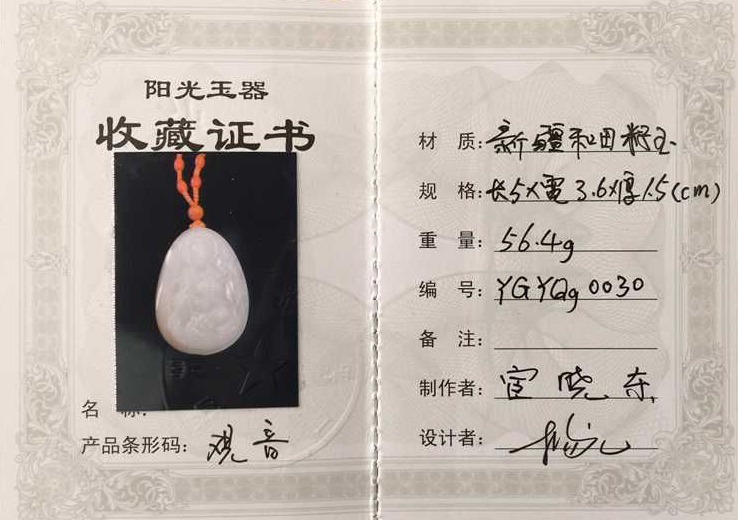 阳光玉器
收藏证书
名 称:
产品条形码: 观音
材 质: 新疆和田籽玉
规 格: 长5×宽3.6×厚1.5(cm)
重 量: 56.4g
编 号: YGYQg0030
备 注:
制作者: 晓东
设计者: